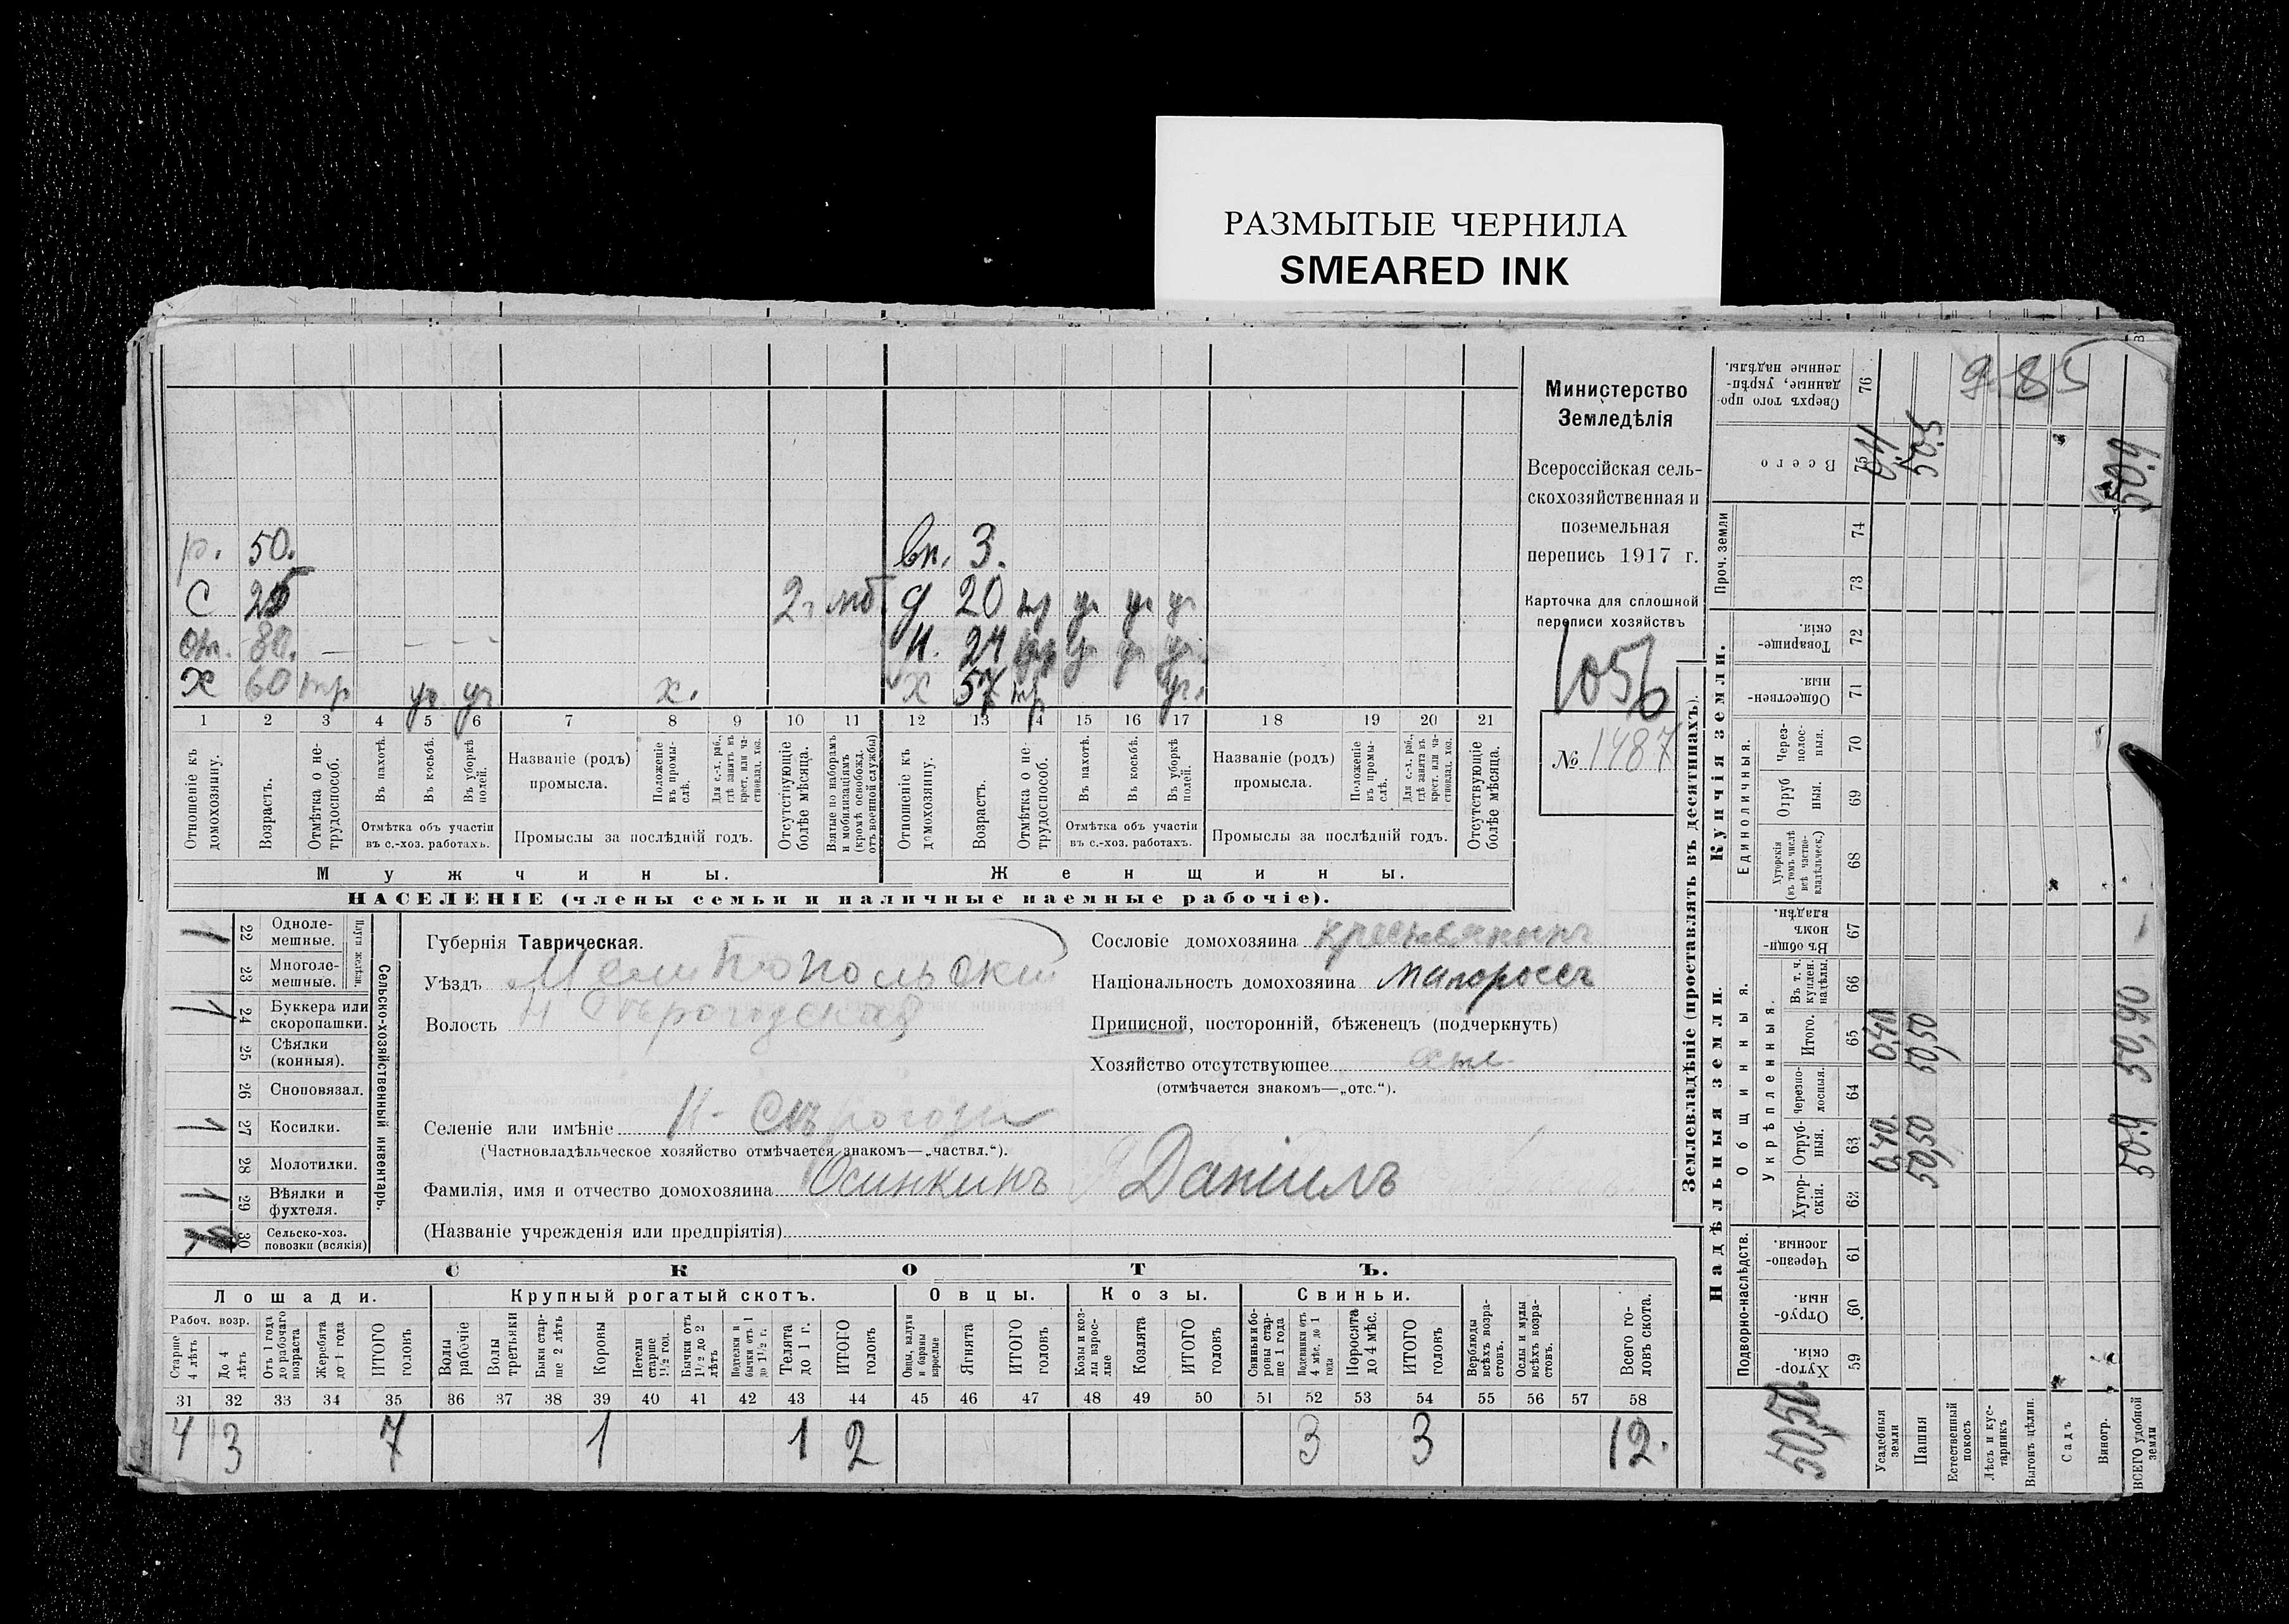 РАЗМЫТЫЕ ЧЕРНИЛА
SMEARED INK
р. 50. вн. 3.
С 25 2 г. мб д 20 тр
80. н. 24
х 60 тр х. х 57 тр
1 2 3 4 5 6 7 8 9 10 11 12 13 14 15 16 17 18 19 20 21
Отношеніе къ домохозяину.
Возрастъ.
Отмѣтка о нетрудоспособ.
Въ пахотѣ.
Въ косьбѣ.
Въ уборкѣ полей.
Отмѣтка объ участіи въ с.-хоз. работахъ.
Названіе (родъ) промысла.
Положеніе въ промыслѣ.
Для с.-х. раб., гдѣ занятъ въ крест. или частновлад. хоз.
Промыслы за послѣдній годъ.
Отсутствующіе болѣе мѣсяца.
Взятые по наборамъ и мобилизаціямъ (кромѣ освобожд. отъ военной службы)
Отношеніе къ домохозяину.
Возрастъ.
Отмѣтка о нетрудоспособ.
Въ пахотѣ.
Въ косьбѣ.
Въ уборкѣ полей.
Отмѣтка объ участіи въ с.-хоз. работахъ.
Названіе (родъ) промысла.
Положеніе въ промыслѣ.
Для с.-х. раб., гдѣ занята въ крест. или частновлад. хоз.
Промыслы за послѣдній годъ.
Отсутствующіе болѣе мѣсяца.
Мужчины. Женщины.
НАСЕЛЕНІЕ (члены семьи и наличные наемные рабочіе).
Министерство
Земледѣлія
Всероссійская сель-
скохозяйственная и
поземельная
перепись 1917 г.
Карточка для сплошной
переписи хозяйствъ
1056
№ 1487
Сельско-хозяйственный инвентарь.
Плуги желѣзн.
22 Однолемешные. 1
23 Многолемешные.
24 Буккера или скоропашки. 1
25 Сѣялки (конныя).
26 Сноповязал.
27 Косилки. 1
28 Молотилки.
29 Вѣялки и фухтеля. 1
30 Сельско-хоз. повозки (всякія)
Губернія Таврическая.
Уѣздъ Мелитопольскій
Волость Н Сѣрогозская
Селеніе или имѣніе Н. Сѣрогозы
(Частновладѣльческое хозяйство отмѣчается знакомъ—„частвл.“).
Фамилія, имя и отчество домохозяина Осинкинъ Даніилъ
(Названіе учрежденія или предпріятія)
Сословіе домохозяина крестьянинъ
Національность домохозяина малороссъ
Приписной, посторонній, бѣженецъ (подчеркнуть)
Хозяйство отсутствующее
(отмѣчается знакомъ—„отс.“).
СКОТЪ.
Лошади. Крупный рогатый скотъ. Овцы. Козы. Свиньи.
Рабоч. возр.
Старше 4 лѣтъ
До 4 лѣтъ
Отъ 1 года до рабочаго возраста
Жеребята до 1 года
ИТОГО головъ
Волы рабочіе
Волы третьяки
Быки старше 2 лѣтъ
Коровы
Нетели старше 1½ год.
Бычки отъ 1½ до 2 лѣтъ
Подтелки и бычки отъ 1 до 1½ г.
Телята до 1 г.
ИТОГО головъ
Овцы, валухи и бараны взрослые
Ягнята
ИТОГО головъ
Козы и козлы взрослые
Козлята
ИТОГО головъ
Свиньи и боровы старше 1 года
Подсвинки отъ 4 мѣс. до 1 года
Поросята до 4 мѣс.
ИТОГО головъ
Верблюды всѣхъ возрастовъ.
Ослы и мулы всѣхъ возрастовъ.
Всего головъ скота.
31 32 33 34 35 36 37 38 39 40 41 42 43 44 45 46 47 48 49 50 51 52 53 54 55 56 57 58
4 3 7 1 1 2 3 3 12.
Землевладѣніе (проставлять въ десятинахъ).
Надѣльныя земли. Купчія земли. Проч. земли
Подворно-наслѣдств. Общинныя. Укрѣпленныя. Единоличныя.
Хуторскія 59
Отрубныя. 60
Черезполосныя 61
Хуторскія. 62
Отрубныя. 63
Черезполосныя. 64
Итого. 65
Въ т. ч. куплен. надѣлы. 66
Въ общинномъ владѣн. 67
Хуторскія (въ томъ числѣ всѣ частновладѣльческ.) 68
Отрубныя. 69
Черезполосныя. 70
Общественныя. 71
Товарищескія. 72
73
74
Всего 75
Сверхъ того проданные, укрѣпленные надѣлы. 76
985
50,50
Усадебныя земли 0,40 0,40 0,4
Пашня 50,50 50,50 50.5
Естественный покосъ
Лѣсъ и кустарникъ
Выгонъ цѣлин.
Садъ
Виногр.
ВСЕГО удобной земли 50.9 50,90 50.9